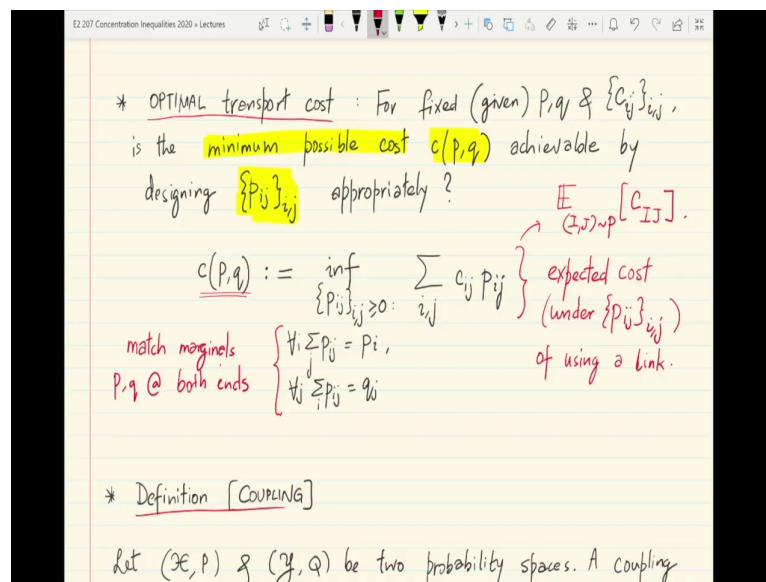 E2 207 Concentration Inequalities 2020 » Lectures
* OPTIMAL transport cost : For fixed (given) p,q & {C_ij}_i,j ,
is the minimum possible cost c(p,q) achievable by
designing {p_ij}_i,j appropriately ?
E_(I,J)~p [C_IJ].
c(p,q) := inf_{p_ij}_i,j ≥0: Σ_i,j c_ij p_ij } expected cost
(under {p_ij}_i,j)
of using a link.
match marginals { ∀i Σ_j p_ij = p_i ,
p,q @ both ends ∀j Σ_i p_ij = q_j
* Definition [COUPLING]
Let (𝒳, P) & (𝒴, Q) be two probability spaces. A coupling